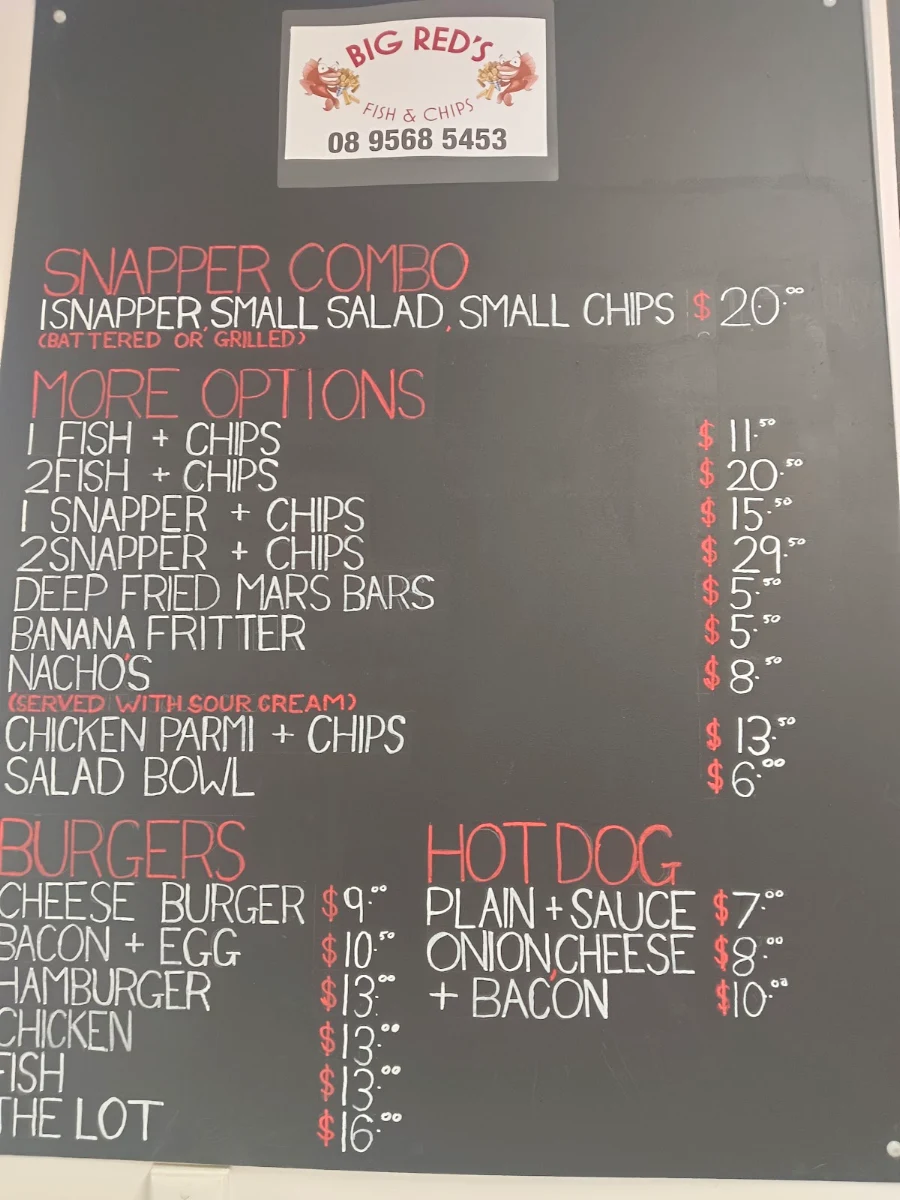 BIG RED'S
FISH & CHIPS
08 9568 5453
SNAPPER COMBO
1 SNAPPER, SMALL SALAD, SMALL CHIPS $20.00
(BATTERED OR GRILLED)
MORE OPTIONS
1 FISH + CHIPS $11.50
2 FISH + CHIPS $20.50
1 SNAPPER + CHIPS $15.50
2 SNAPPER + CHIPS $29.50
DEEP FRIED MARS BARS $5.50
BANANA FRITTER $5.50
NACHO'S $8.50
(SERVED WITH SOUR CREAM)
CHICKEN PARMI + CHIPS $13.50
SALAD BOWL $6.00
BURGERS
CHEESE BURGER $9.00
BACON + EGG $10.50
HAMBURGER $13.00
CHICKEN $13.00
FISH $13.00
THE LOT $16.00
HOT DOG
PLAIN + SAUCE $7.00
ONION, CHEESE $8.00
+ BACON $10.00